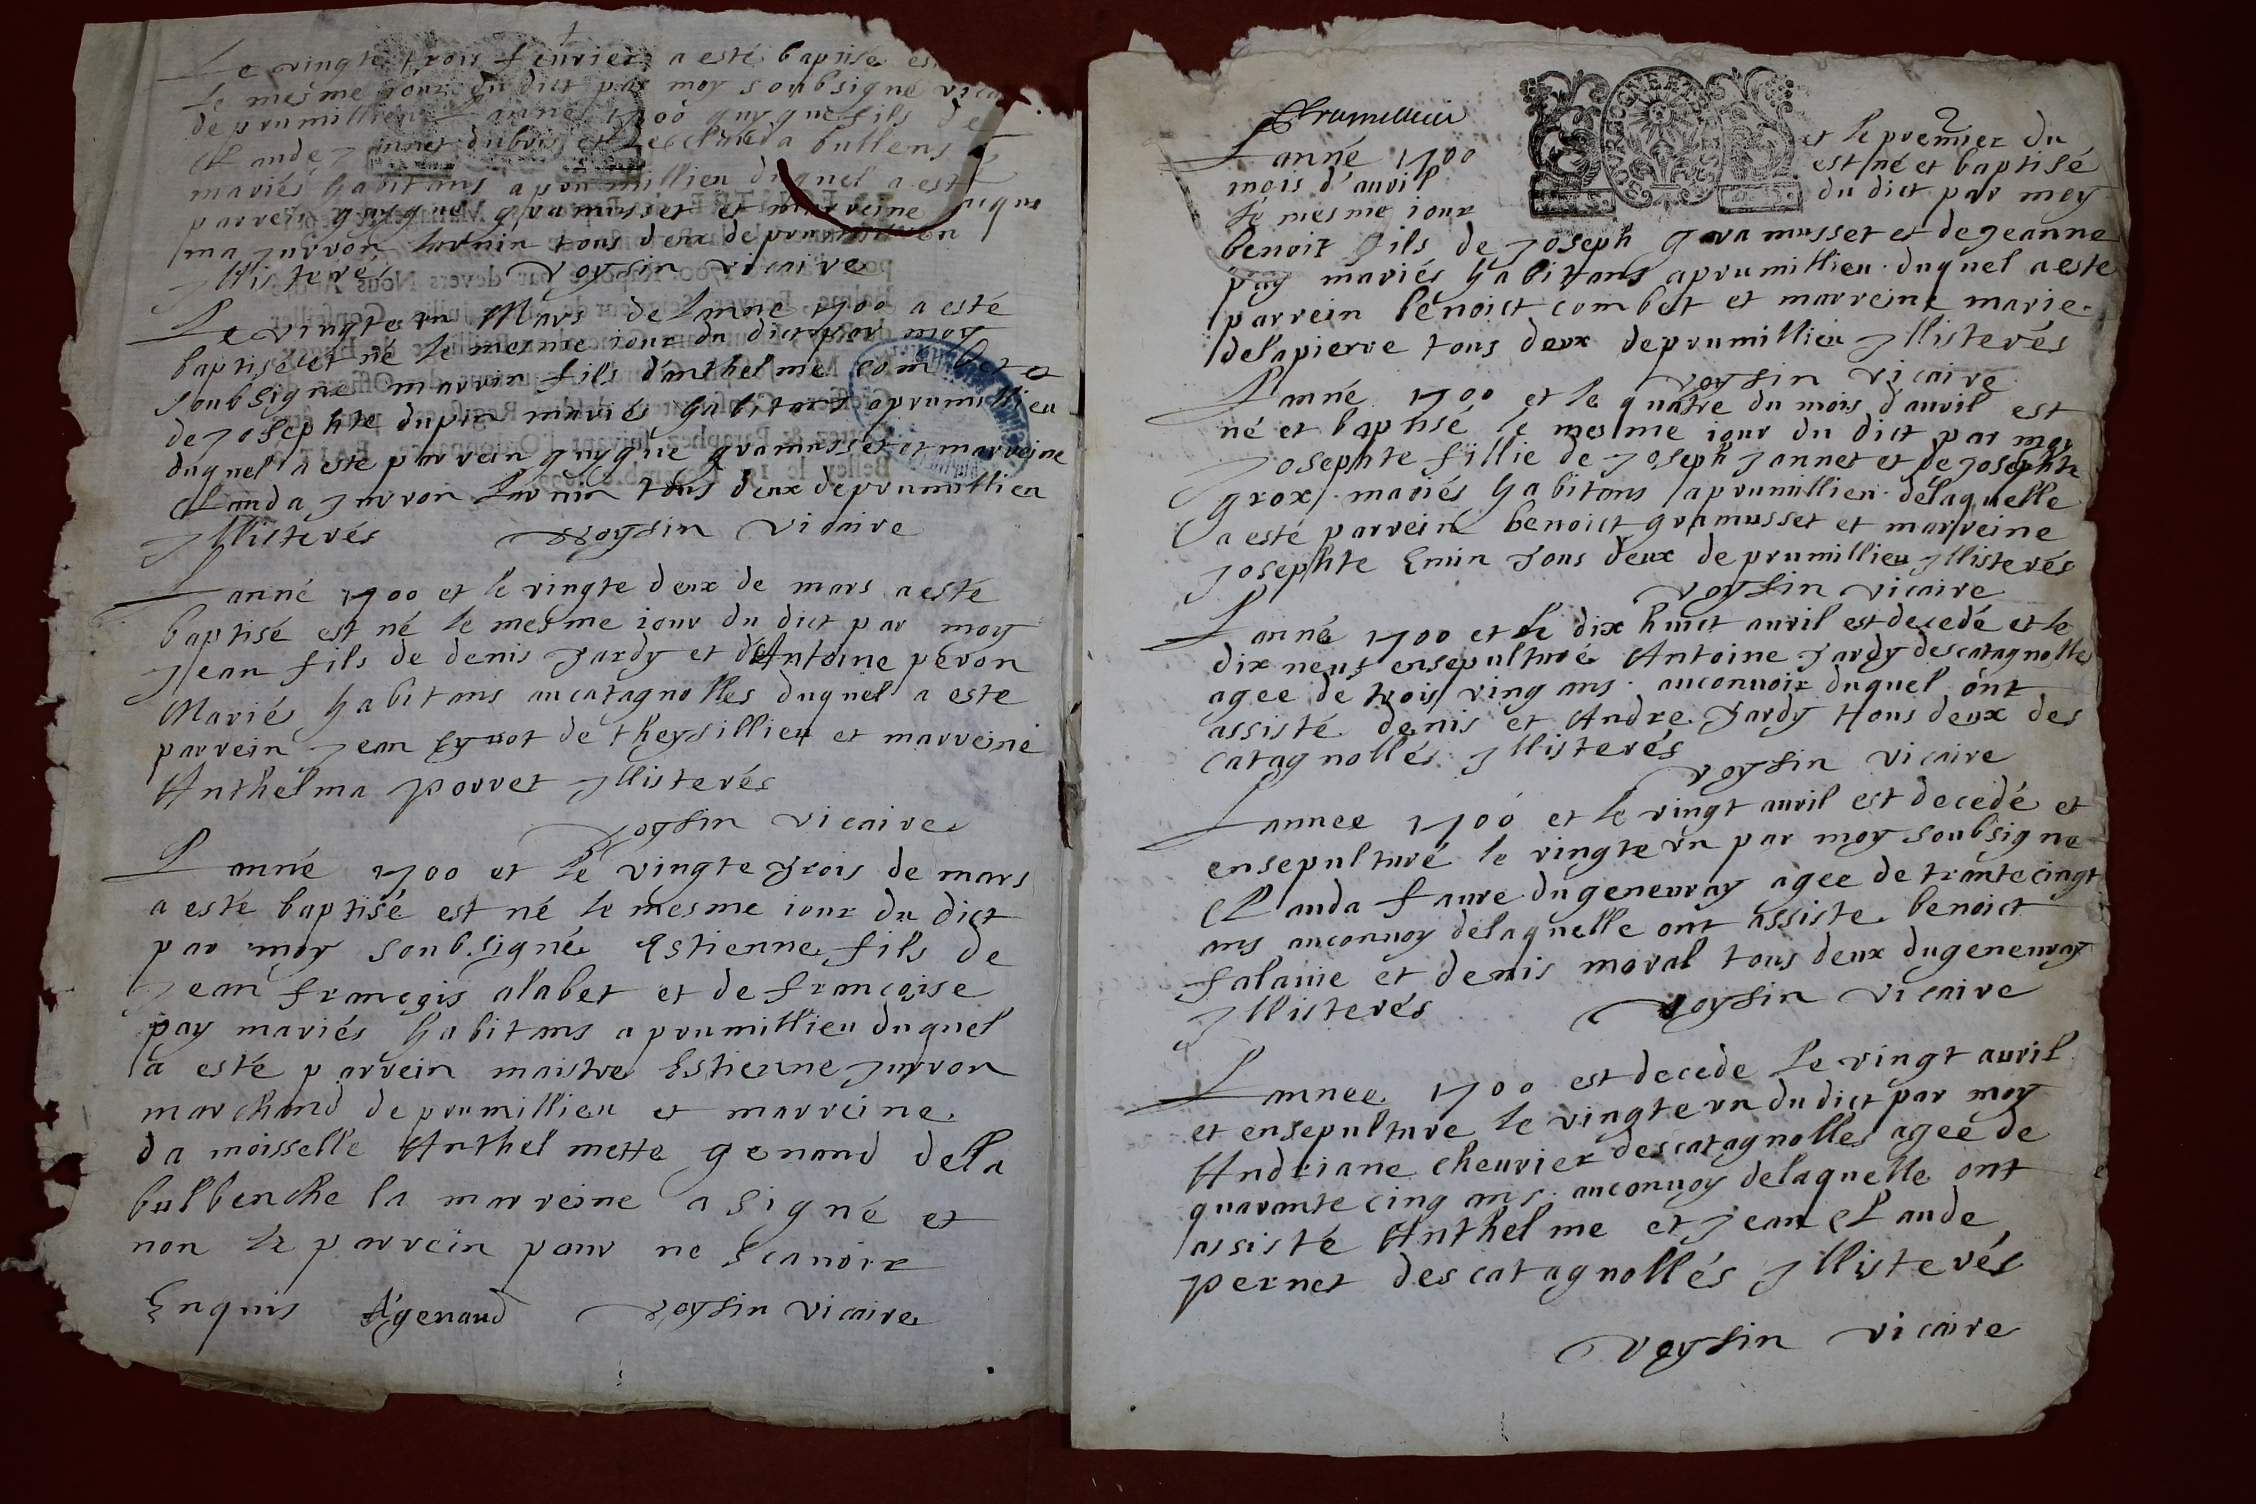 Le vingte trois feuvrier a esté baptisé es
le mesme iour du dict par moy soubsigné vica
de prumillieu lannée 1700 guygue fils de
Claude Jannet dubois et de Clauda bullens
mariés habitans a prumillieu duquel a esté
parrein guygue gramusset et marreine
ma Jurron Lornin tous deux de prumillieu
Jllisterés Voysin vicaire
Le vingte vn Mars de lanné 1700 a esté
baptisé et né le mesme iour du dict par moy
soubsigné marvin fils d'anthelme combet et
de Josephte dupin mariés habitans aprumillieu
duquel a esté parrein guygue gramusset et marreine
Clauda Jurron Lornin tous deux de prumillieu
Jllisterés Voysin vicaire
Lanné 1700 et le vingte deux de mars a esté
baptisé est né le mesme iour du dict par moy
Jean fils de denis Jardy et d'Antoine peron
Mariés habitans aucatagnolles duquel a este
parrein Jean Eynot de theysillieu et marreine
Anthelma porret Jllisterés
Voysin vicaire
Lanné 1700 et le vingte trois de mars
a esté baptisé est né le mesme iour du dict
par moy soubsigné Estienne fils de
Jean françois alabet et de françoise
pay mariés habitans a prumillieu duquel
a esté parrein maistre Estienne Jurron
marchand de prumillieu et marreine
damoisselle Anthelmette genand dela
bulbenche la marreine a signé et
non le parrein pour ne scavoir
Enquis A genand Voysin vicaire
2
Prumillieu
Lanné 1700 et le premier du
mois d'auril est né et baptisé
le mesme iour du dict par moy
benoit fils de Joseph gramusset et de Jeanne
pay mariés habitans aprumillieu duquel a este
parrein benoict combet et marreine marie
delapierre tous deux de prumillieu Jllisterés
Voysin vicaire
Lanné 1700 et le quatre du mois d'auril est
né et baptisé le mesme iour du dict par moy
Josephte fillie de Joseph Jannet et de Josephte
grox mariés habitans a prumillieu delaquelle
a esté parrein benoict gramusset et marreine
Josephte Emin Tous deux de prumillieu Jllisterés
Voysin vicaire
Lanné 1700 et le dix huict auril est decedé et le
dix neuf ensepulturé Antoine Jardy descatagnolles
agee de trois ving ans auconuoir duquel ont
assisté denis et Andre Jardy tous deux des
catagnollés Jllisterés
Voysin vicaire
Lannee 1700 et le vingt auril est decedé et
ensepulturé le vingte vn par moy soubsigné
Clauda faure dugeneuray agee de trantecingt
ans auconuoy delaquelle ont assisté benoict
falavie et denis moral tous deux dugeneuray
Jllisterés Voysin vicaire
Lannee 1700 est decede le vingt auril
et ensepulture le vingte vn du dict par moy
Andriane cheurier descatagnollés agee de
quarante cing ans auconuoy delaquelle ont
assisté Anthelme et Jean Claude
pernet descatagnollés Jllisterés
Voysin vicaire